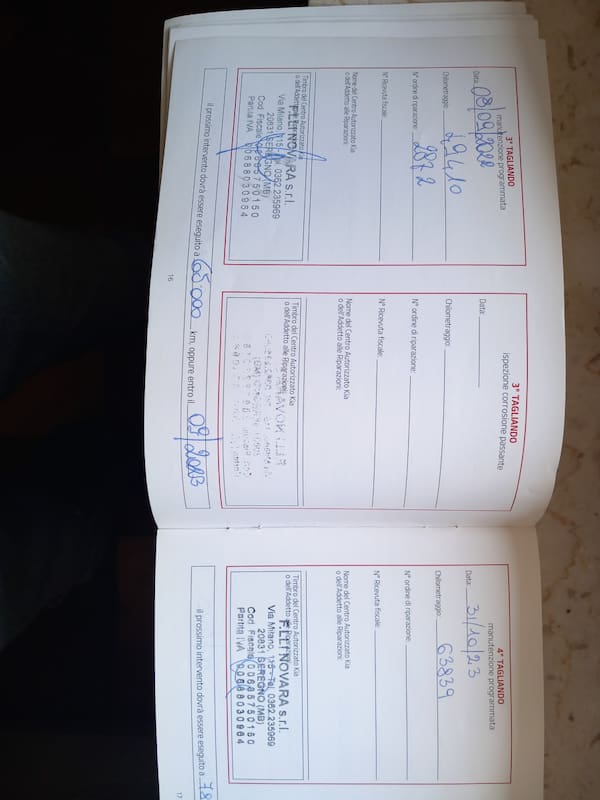 3° TAGLIANDO
manutenzione programmata
Data: 08/09/2022
Chilometraggio:
N° ordine di riparazione: 2872
N° Ricevuta fiscale:
Nome del Centro Autorizzato Kia
o dell'Addetto alle Riparazioni:
Timbro del Centro Autorizzato Kia
o dell'Addetto alle
F.LLI NOVARA s.r.l.
Via Milano, 115 - Tel. 0362.235969
20831 SEREGNO (MB)
Cod. Fiscale 00685750150
Partita IVA 00688030964
il prossimo intervento dovrà essere eseguito a 65000 km. oppure entro il 09/2023
16
3° TAGLIANDO
ispezione corrosione passante
Data:
Chilometraggio:
N° ordine di riparazione:
N° Ricevuta fiscale:
Nome del Centro Autorizzato Kia
o dell'Addetto alle Riparazioni:
Timbro del Centro Autorizzato Kia
o dell'Addetto alle Riparazioni:
4° TAGLIANDO
manutenzione programmata
Data: 31/10/23
Chilometraggio: 63839
N° ordine di riparazione:
N° Ricevuta fiscale:
Nome del Centro Autorizzato Kia
o dell'Addetto alle Riparazioni:
Timbro del Centro Autorizzato Kia
o dell'Addetto
F.LLI NOVARA s.r.l.
Via Milano, 115 - Tel. 0362.235969
20831 SEREGNO (MB)
Cod. Fiscale 00685750150
Partita IVA 00688030964
il prossimo intervento dovrà essere eseguito a 78
17